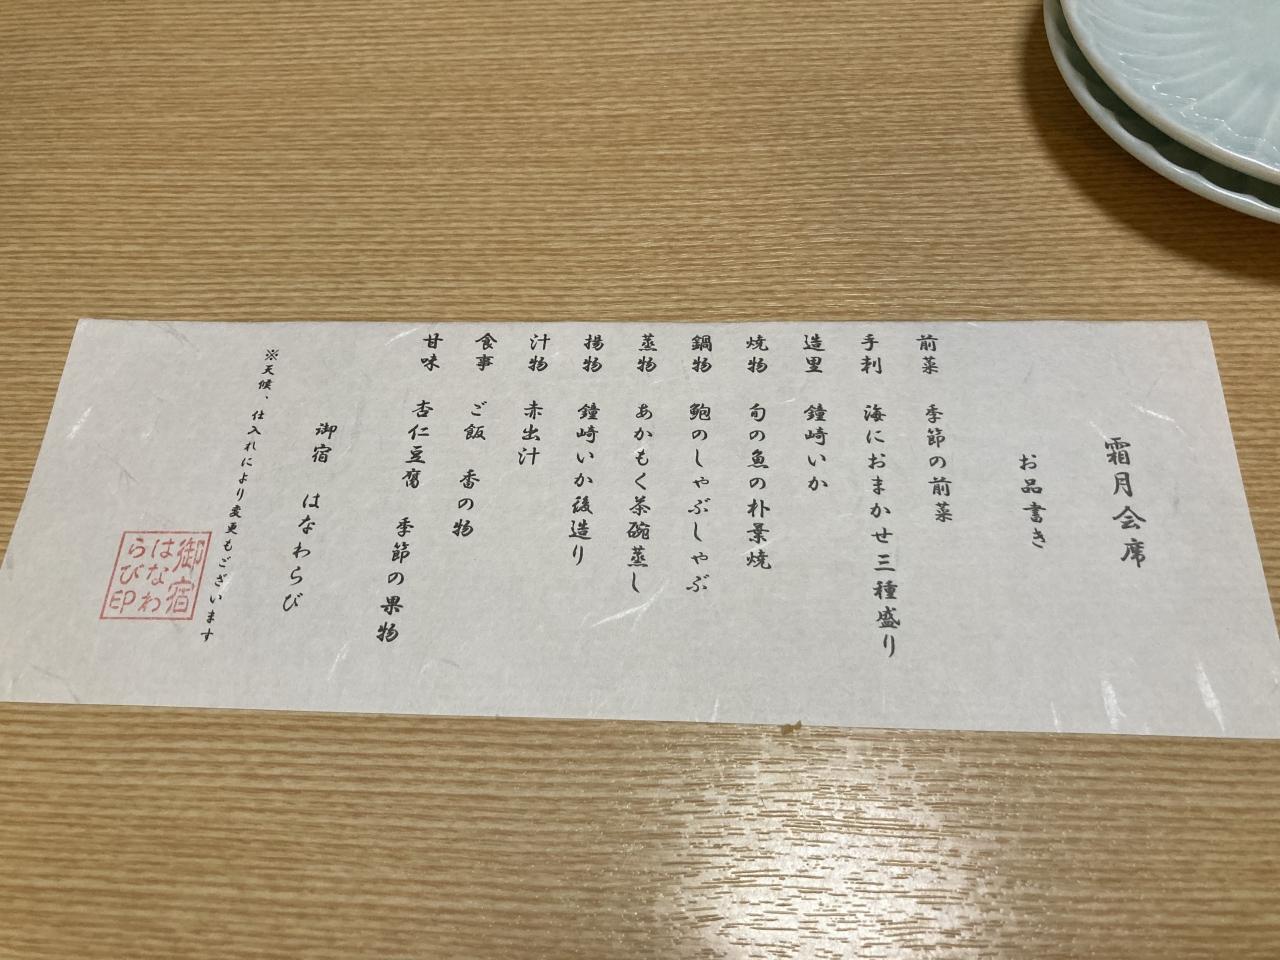 霜月会席
お品書き
前菜 季節の前菜
手刺 海におまかせ三種盛り
造里 鐘崎いか
焼物 旬の魚の朴葉焼
鍋物 鮑のしゃぶしゃぶ
蒸物 あかもく茶碗蒸し
揚物 鐘崎いか後造り
汁物 赤出汁
食事 ご飯 香の物
甘味 杏仁豆腐 季節の果物
御宿 はなわらび
※天候、仕入れにより変更もございます
御宿
はなわ
らび印